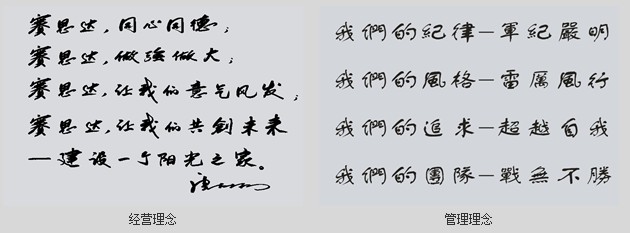 赛思达,同心同德;
赛思达,做强做大;
赛思达,让我们意气风发;
赛思达,让我们共创未来
—建设一个阳光之家。
经营理念
我們的紀律—軍紀嚴明
我們的風格—雷厲風行
我們的追求—超越自我
我們的團隊—戰無不勝
管理理念